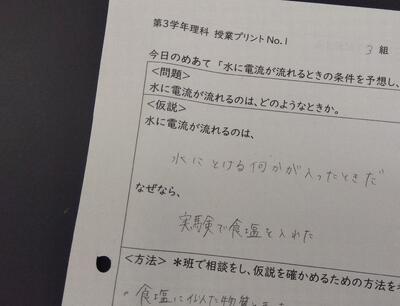 第3学年理科 授業プリントNo.1
3 組
今日のめあて「水に電流が流れるときの条件を予想し、
<問題>
水に電流が流れるのは、どのようなときか。
<仮説>
水に電流が流れるのは、
水にとける何かが入ったときだ
なぜなら、
実験で食塩を入れた
<方法> *班で相談をし、仮説を確かめるための方法を
。食塩に似た物質